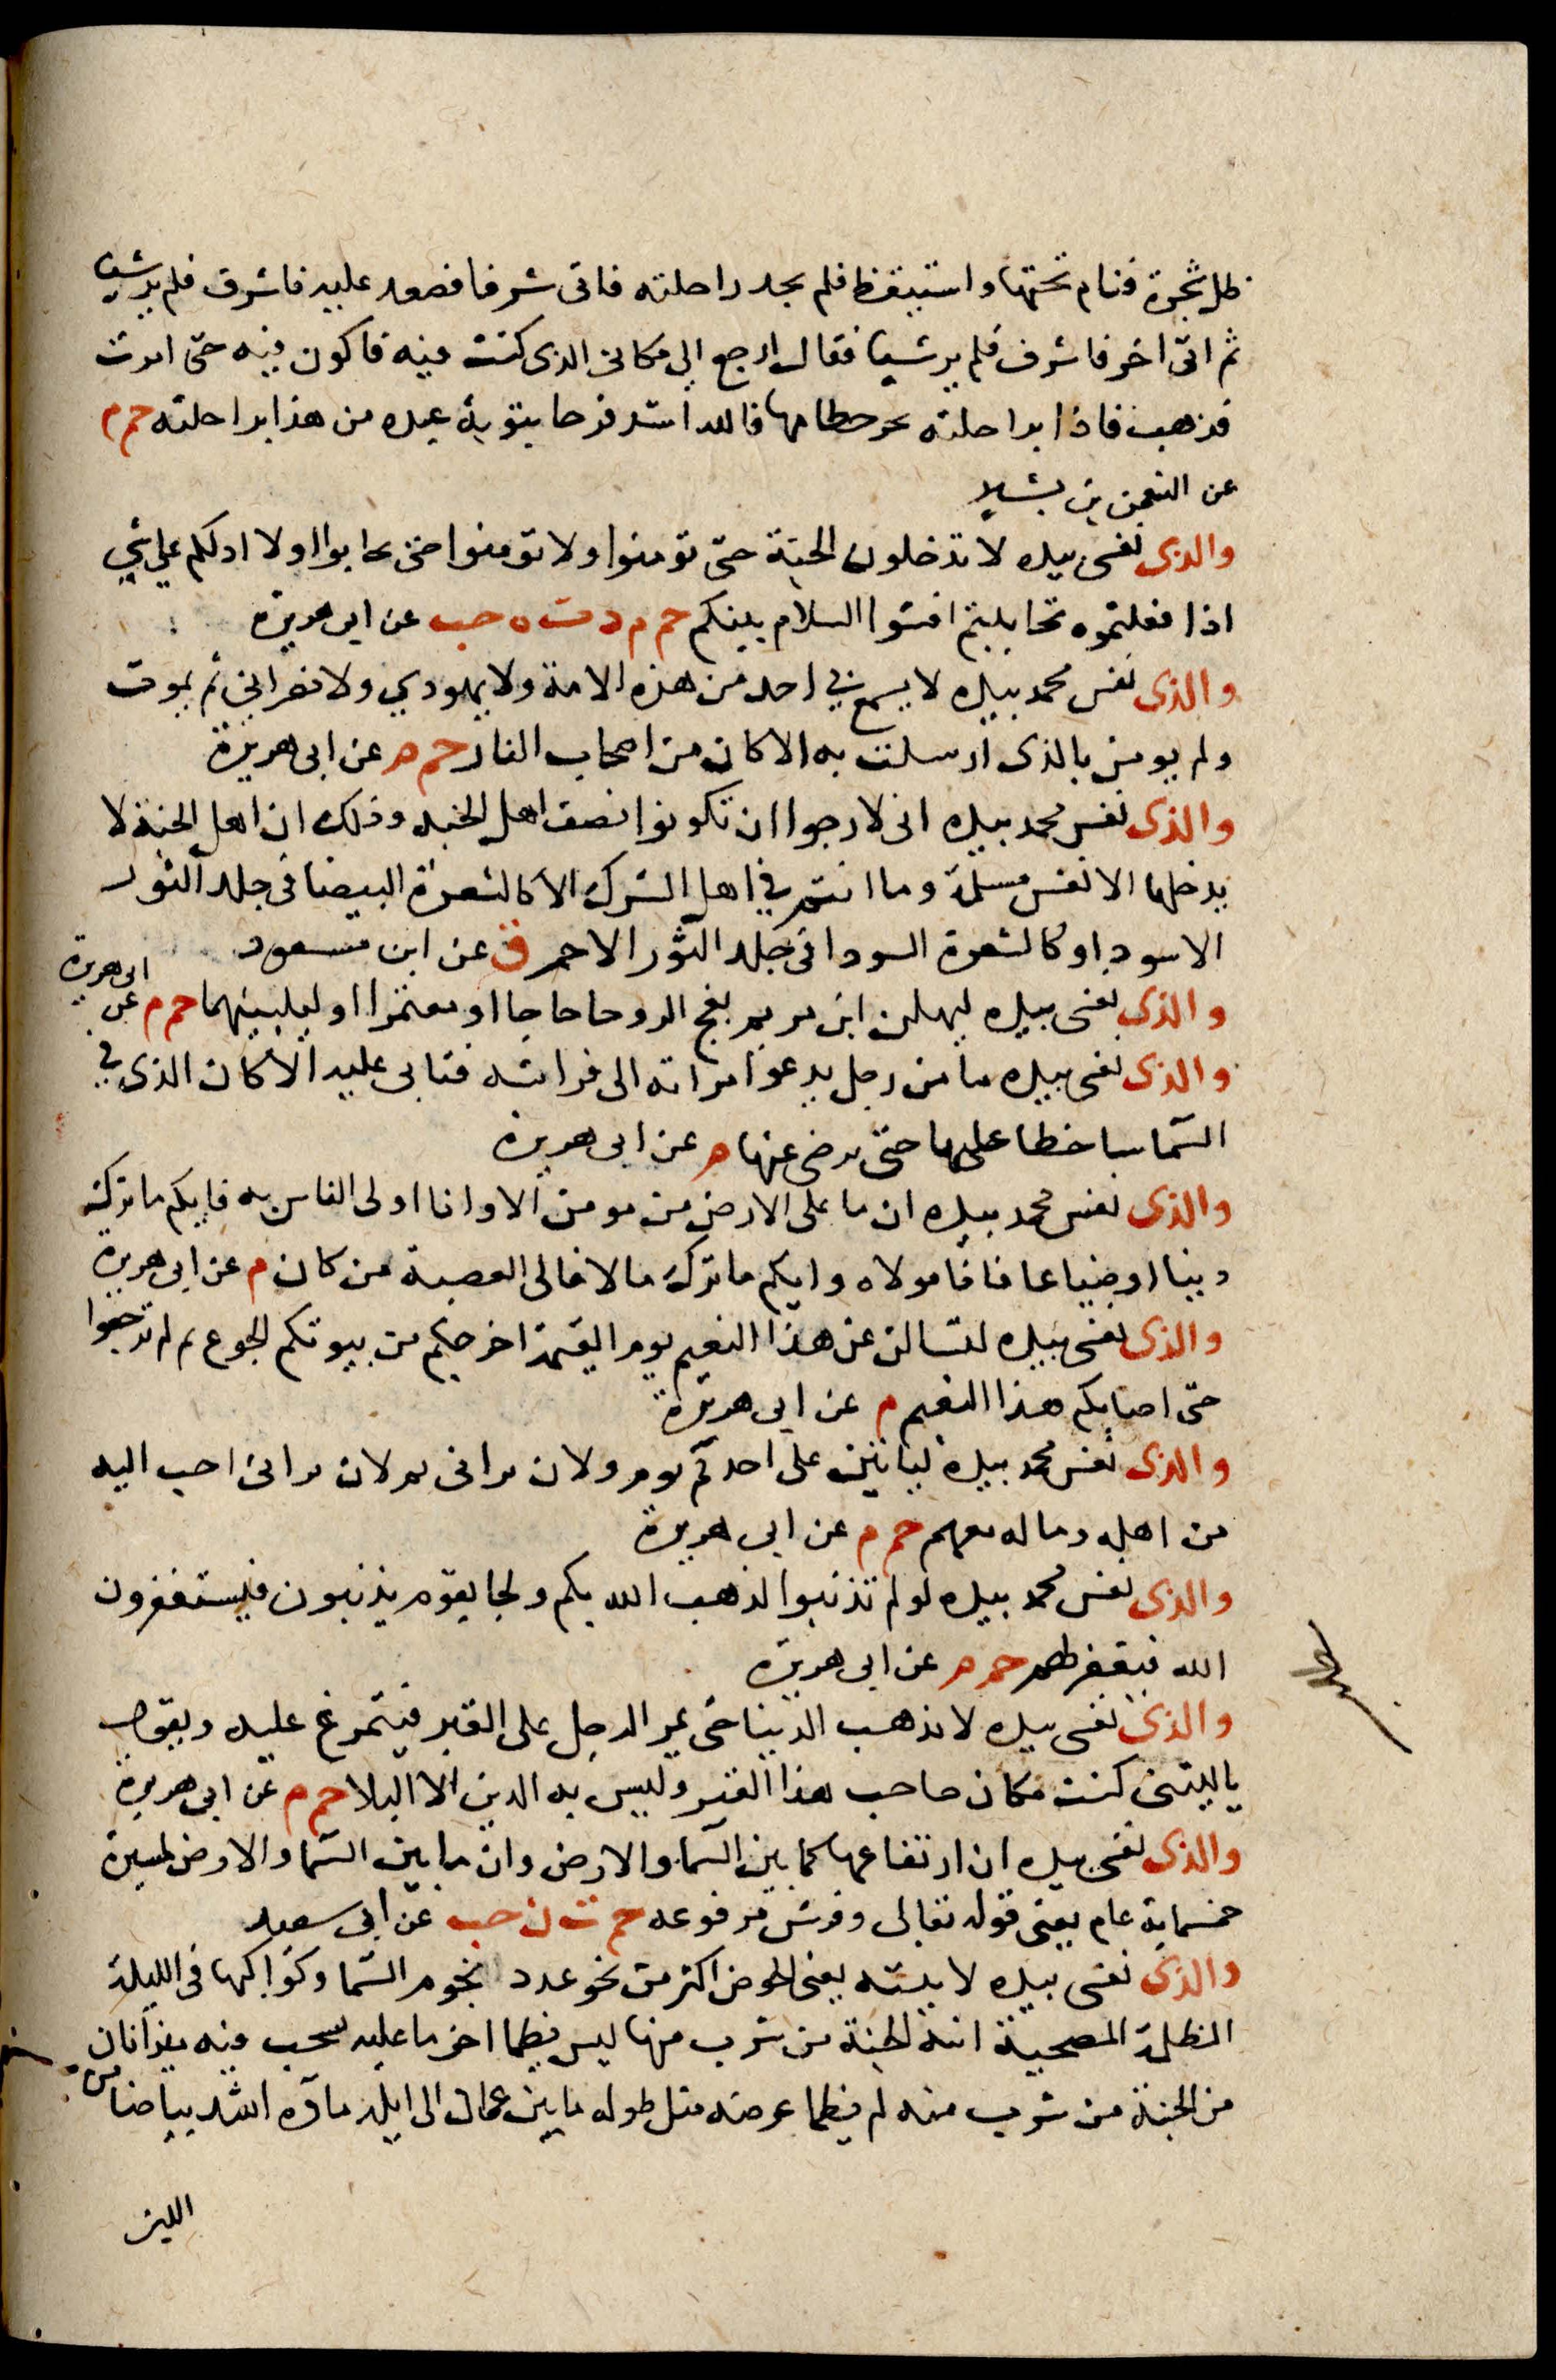 ظل شجرة فنام تحتها واستيقظ فلم يجد راحلته فاتى شرفا فصعد عليه فاشرف فلم ير شيا
ثم اتى اخر فاشرف فلم ير شيا فقال ارجع الى مكانى الذى كنت فيه فاكون فيه حتى اموت
فذهب فاذا براحلته تجر خطامها فالله اشد فرحا بتوبة عبده من هذا براحلته حم م
عن النعمن بن بشير
والذى نفسى بيده لا تدخلون الجنة حتى تومنوا ولا تومنوا حتى تحابوا اولا ادلكم على شي
اذا فعلتموه تحاببتم افشوا السلام بينكم حم م د ت ه حب عن ابى هريرة
والذى نفس محمد بيده لا يسمع بي احد من هذه الامة ولا يهودي ولا نصرانى ثم يموت
ولم يومن بالذى ارسلت به الا كان من اصحاب النار حم م عن ابى هريرة
والذى نفس محمد بيده انى لارجوا ان تكونوا نصف اهل الجنة وذلك ان اهل الجنة لا
يدخلها الا نفس مسلمة وما انتم في اهل الشرك الا كالشعرة البيضا فى جلد الثور
الاسود او كالشعرة السودا فى جلد الثور الاحمر ق عن ابن مسعود
والذى نفسى بيده ليهلن ابن مريم بفج الروحا حاجا او معتمرا او ليلبينهما حم م عن ابى هريرة
والذى نفسى بيده ما من رجل يدعو امراته الى فراشه فتابى عليه الا كان الذى في
السما ساخطا عليها حتى يرضى عنها م عن ابى هريرة
والذى نفس محمد بيده ان ما على الارض من مومن الا وانا اولى الناس به فايكم ما ترك
دينا او ضياعا فانا مولاه وايكم ما ترك مالا فالى العصبة من كان م عن ابى هريرة
والذى نفسى بيده لتسالن عن هذا النعيم يوم القيمة اخرجكم من بيوتكم الجوع ثم لم ترجعوا
حتى اصابكم هذا النعيم م عن ابى هريرة
والذى نفس محمد بيده لياتين على احدكم يوم ولان يرانى ثم لان يرانى احب اليه
من اهله وماله معهم حم م عن ابى هريرة
والذى نفس محمد بيده لو لم تذنبوا لذهب الله بكم ولجا بقوم يذنبون فيستغفرون
الله فيغفر لهم حم م عن ابى هريرة
والذى نفسى بيده لا تذهب الدنيا حتى يمر الرجل على القبر فيتمرغ عليه ويقول
ياليتنى كنت مكان صاحب هذا القبر وليس به الدين الا البلا حم م عن ابى هريرة
والذى نفسى بيده ان ارتفاعها كما بين السما والارض وان ما بين السما والارض لمسيرة
خمسماية عام يعنى قوله تعالى وفرش مرفوعه حم ت ن حب عن ابى سعيد
والذى نفسى بيده لا نيته يعنى الحوض اكثر من نحو عدد نجوم السما وكواكبها فى الليلة
المظلمة المصحية انية الجنة من شرب منها ليس يظما اخر ما عليه يشخب فيه ميزابان
من الجنة من شرب منه لم يظما عرضه مثل طوله ما بين عمان الى ايلة ماوه اشد بياضا من
اللبن